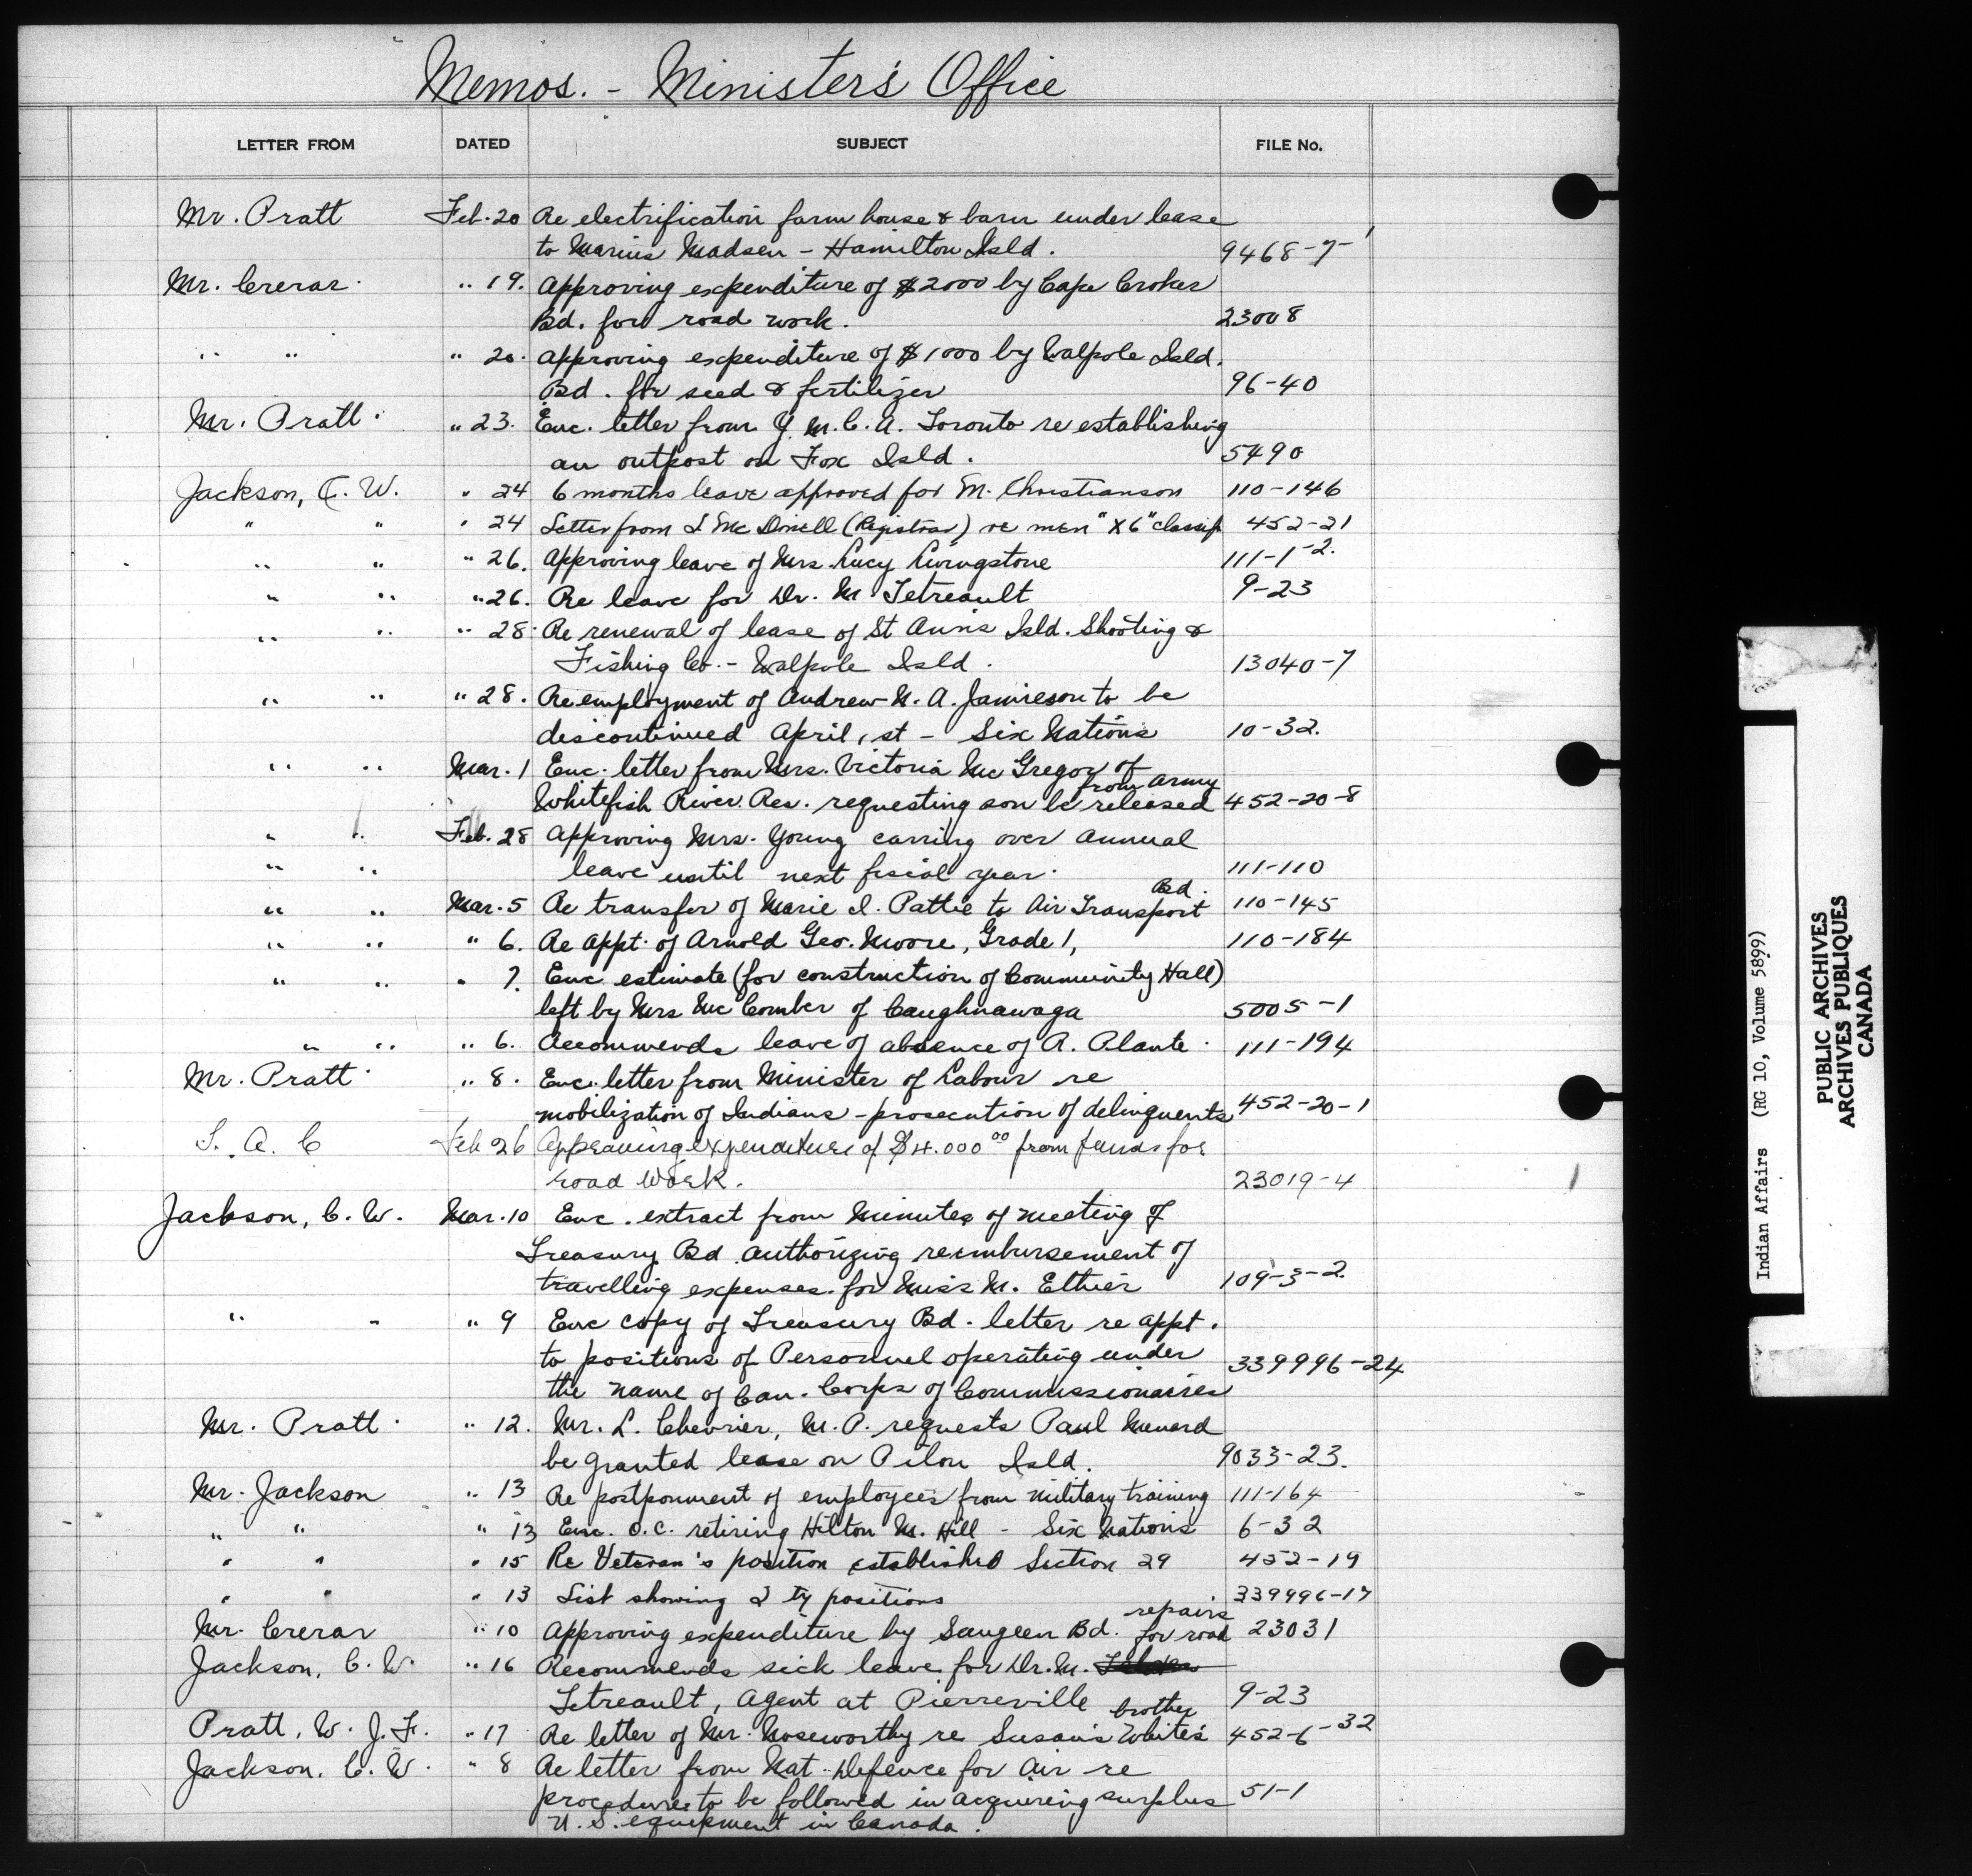 Memos. - Minister's Office
LETTER FROM DATED SUBJECT FILE No.
Mr. Pratt Feb. 20 Re electrification farm house & barn under lease
to Marius Madsen - Hamilton Isld. 9468-7-1
Mr. Crerar. " 19. Approving expenditure of $2000 by Cape Croker
Bd. for road work. 23008
" " " 20. Approving expenditure of $1000 by Walpole Isld.
Bd. for seed & fertilizer 96-40
Mr. Pratt. " 23. Enc. letter from Y.M.C.A. Toronto re establishing
an outpost on Fox Isld. 5490
Jackson, C. W. " 24 6 months leave approved for M. Christianson 110-146
" " " 24 Letter from L Mc Donell (Registrar) re men "X6" classif 452-21
" " " 26. Approving leave of Mrs. Lucy Livingstone 111-1-2.
" " " 26. Re leave for Dr. M. Tetreault 9-23
" " " 28. Re renewal of lease of St Ann's Isld. Shooting &
Fishing Co. - Walpole Isld. 13040-7
" " " 28. Re employment of Andrew N. A. Jamieson to be
discontinued April 1st - Six Nations 10-32.
" " Mar. 1 Enc. letter from Mrs. Victoria Mc Gregor of
from Army
Whitefish River Res. requesting son be released 452-20-8
" " Feb. 28 Approving Mrs. Young carring over annual
" " leave until next fiscal year. 111-110
Bd.
" " Mar. 5 Re transfer of Marie I. Pattie to Air Transport 110-145
" " " 6. Re appt. of Arnold Geo. Moore, Grade 1, 110-184
" " " 7. Enc estimate (for construction of Community Hall)
left by Mrs Mc Comber of Caughnawaga 5005-1
" " " 6. Recommends leave of absence of A. Plante. 111-194
Mr. Pratt. " 8. Enc. letter from Minister of Labour re
mobilization of Indians - prosecution of delinquents 452-20-1
T. A. C Feb 26 Approving expenditure of $4.000 00 from funds for
road work. 23019-4
Jackson, C. W. Mar. 10 Enc. extract from minutes of meeting of
Treasury Bd. authorizing reimbursement of
travelling expenses for Miss M. Ethier 109-3-2.
" " " 9 Enc copy of Treasury Bd. letter re appt.
to positions of Personnel operating under 339996-24
the name of Can. Corps of Commissionaires
Mr. Pratt. " 12. Mr. L. Chevrier, M.P. requests Paul Menard
be granted lease on Pilon Isld. 9033-23.
Mr. Jackson " 13 Re postponment of employees from military training 111-164
" " " 13 Enc. O.C. retiring Hilton M. Hill - Six Nations 6-32
" " " 15 Re Veteran's position established Section 29 452-19
" " " 13 List showing 2 ty positions 339996-17
repairs
Mr. Crerar " 10 Approving expenditure by Saugeen Bd. for road 23031
Jackson, C. W. " 16 Recommends sick leave for Dr. M.
Tetreault, Agent at Pierreville 9-23
brother
Pratt, W. J. F. " 17 Re letter of Mr. Noseworthy re Susan's White's 452-6-32
Jackson, C. W. " 8 Re letter from Nat. Defence for Air re
procedure to be followed in acquiring surplus 51-1
U. S. equipment in Canada.
Indian Affairs (RG 10, Volume 5899)
PUBLIC ARCHIVES
ARCHIVES PUBLIQUES
CANADA